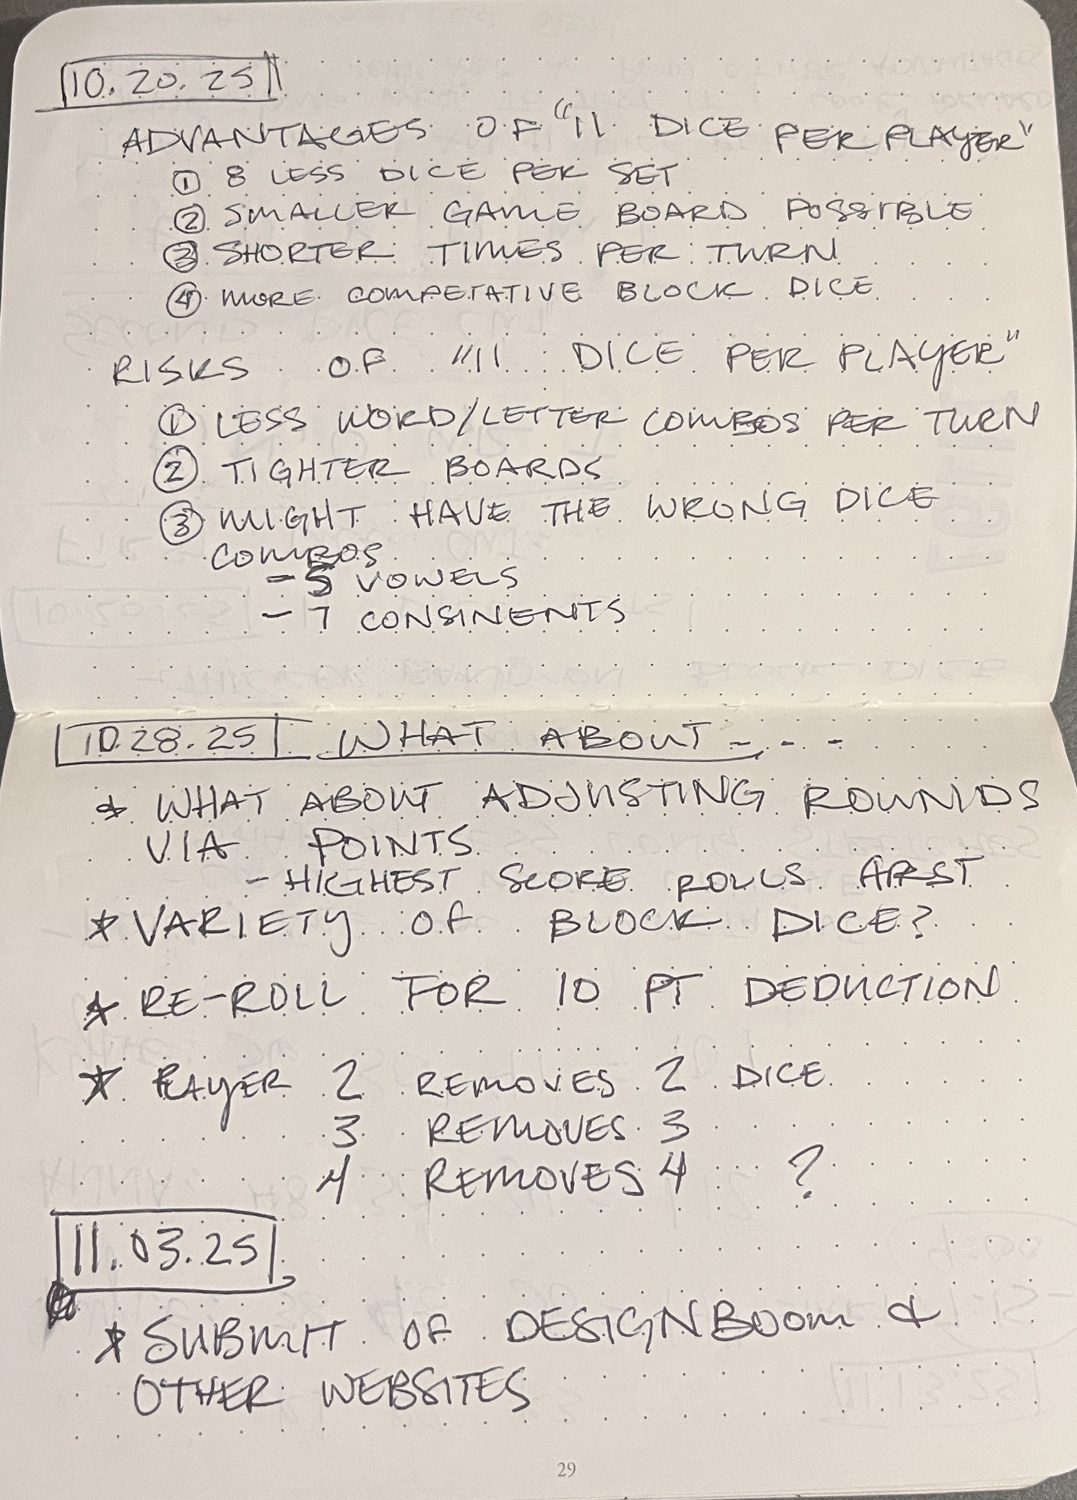 10.20.25
ADVANTAGES OF "11 DICE PER PLAYER"
① 8 LESS DICE PER SET
② SMALLER GAME BOARD POSSIBLE
③ SHORTER TIMES PER TURN
④ MORE COMPETATIVE BLOCK DICE
RISKS OF "11 DICE PER PLAYER"
① LESS WORD/LETTER COMBOS PER TURN
② TIGHTER BOARDS
③ MIGHT HAVE THE WRONG DICE
COMBOS
- 5 VOWELS
- 7 CONSINENTS
10.28.25 WHAT ABOUT - - -
* WHAT ABOUT ADJUSTING ROUNDS
VIA POINTS
- HIGHEST SCORE ROLLS FIRST
* VARIETY OF BLOCK DICE?
* RE-ROLL FOR 10 PT DEDUCTION
* PLAYER 2 REMOVES 2 DICE
3 REMOVES 3
4 REMOVES 4 ?
11.03.25
* SUBMIT OF DESIGNBOOM &
OTHER WEBSITES
29